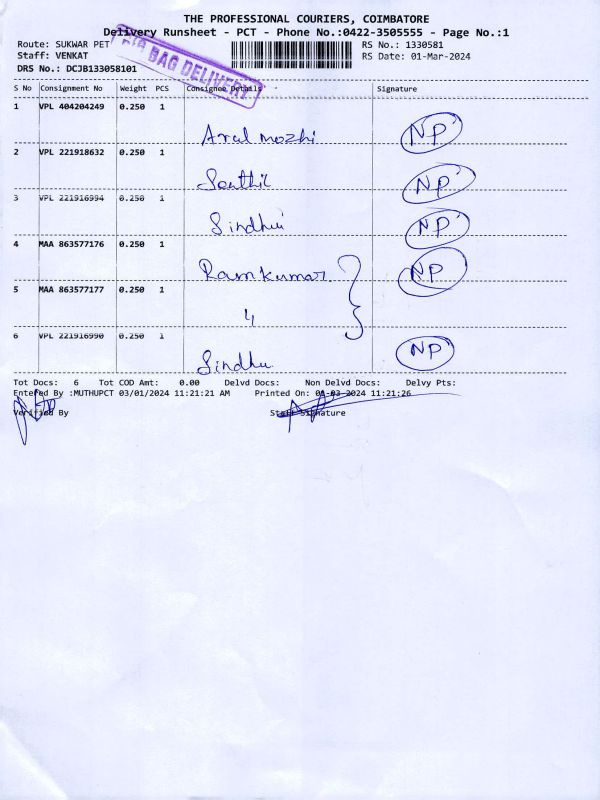 THE PROFESSIONAL COURIERS, COIMBATORE
Delivery Runsheet - PCT - Phone No.:0422-3505555 - Page No.:1
Route: SUKWAR PET
RS No.: 1330581
Staff: VENKAT
RS Date: 01-Mar-2024
DRS No.: DCJB133058101
BAG DELIVERY
S No Consignment No Weight PCS Consignee Details Signature
1 VPL 404204249 0.250 1
Arul mozhi NP
2 VPL 221918632 0.250 1
Senthil NP
3 VPL 221916994 0.250 1
Sindhu NP
4 MAA 863577176 0.250 1
Ramkumar NP
5 MAA 863577177 0.250 1
6 VPL 221916990 0.250 1
Sindhu NP
Tot Docs: 6 Tot COD Amt: 0.00 Delvd Docs: Non Delvd Docs: Delvy Pts:
Entered By :MUTHUPCT 03/01/2024 11:21:21 AM Printed On: 01-03-2024 11:21:26
Verified By Staff Signature